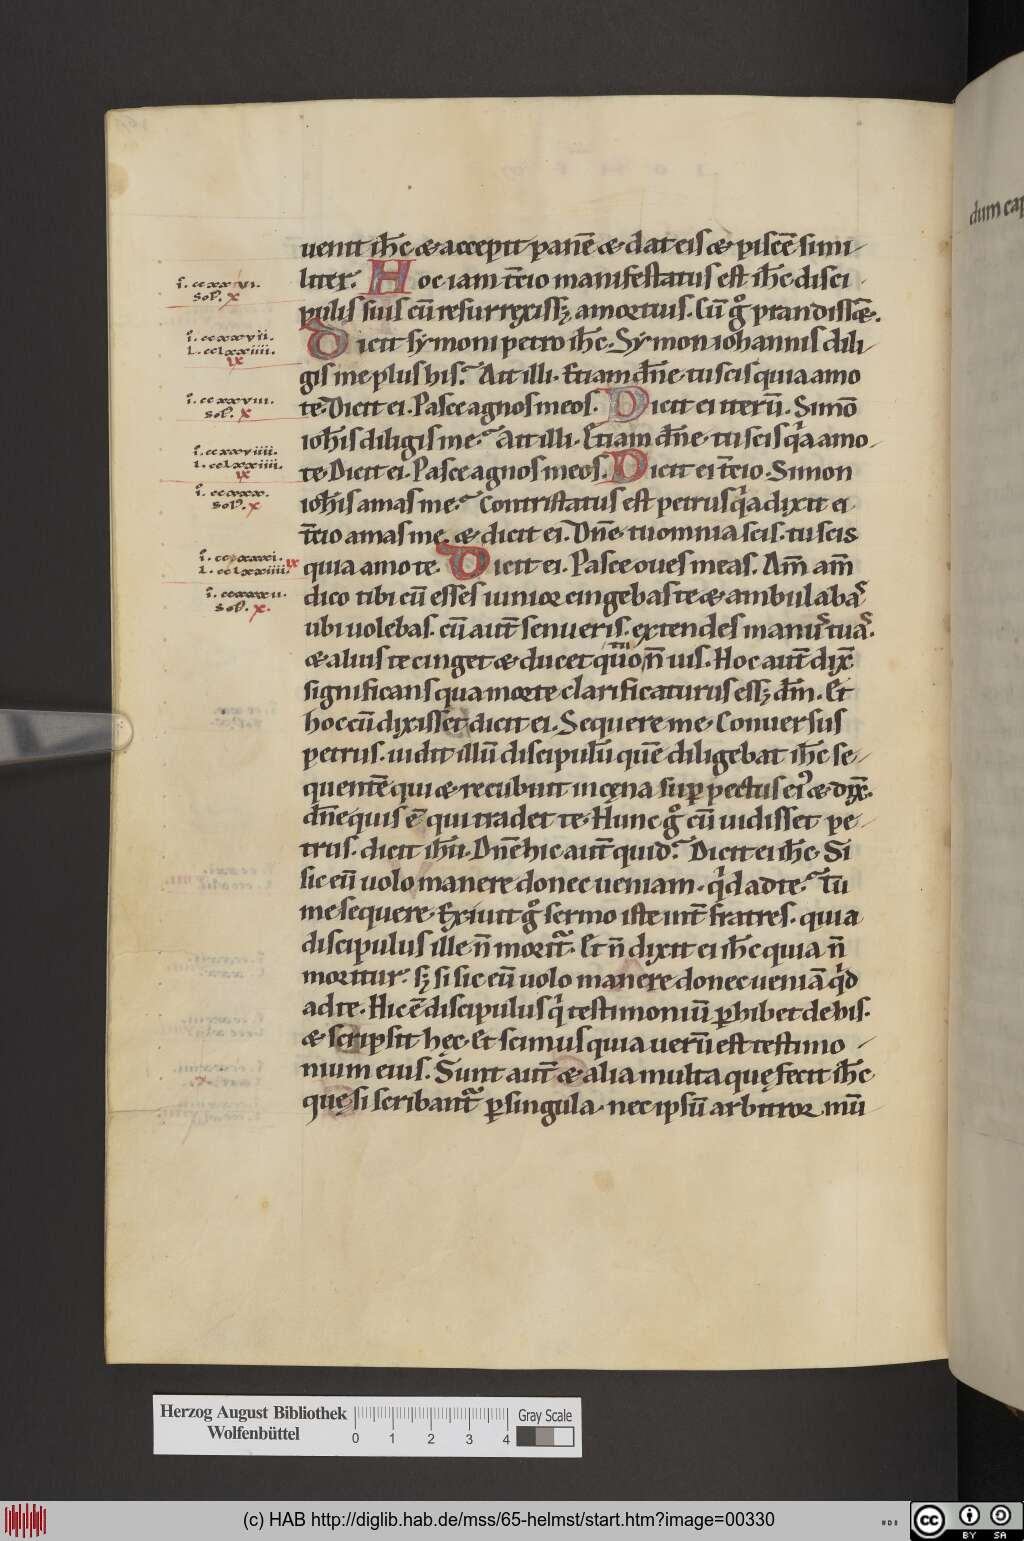 uenit ih̅c & accepit pane̅ & dat eis & pisce̅ simi-
liter. Hoc iam t̅cio manifestatus est ih̅c disci
pulis suis cu̅ resurrexiss&; a mortuis. Cu̅ gͦ prandisse̅.
Dicit symoni petro ih̅c. Symon iohannis dili-
gis me plus his? Ait illi. Etiam dn̅e. tu scis quia amo
te. Dicit ei. Pasce agnos meos. Dicit ei iteru̅. Simo̅
ioh̅is diligis me? Ait illi. Etiam dn̅e. tu scis qͥa amo.
te. Dicit ei. Pasce agnos meos. Dicit ei t̅cio. Simon
ioh̅is amas me? Contristatus est petrus qͥa dixit ei
t̅cio amas me. & dicit ei. Dn̅e. tu omnia scis. tu scis
quia amo te. Dicit ei. Pasce oues meas. Am̅ am̅
dico tibi cu̅ esses iunior cingebas te & ambulabas
ubi uolebas. cu̅ aut̅ senueris. extendes manus tuas.
& alius te cinget & ducet quo n̅ uis. Hoc aut̅ dix̅
significans qua morte clarificaturus ess&; dm̅. Et
hoc cu̅ dixisset dicit ei. Sequere me. Conuersus
petrus. uidit illu̅ discipulu̅ que̅ diligebat ih̅c se-
quente̅ qui & recubuit in cęna sup̱ pectus eiꝰ & dix̅.
dn̅e quis e̅ qui tradet te. Hunc gͦ cu̅ uidisset pe-
trus. dicit ih̅u. Dn̅e hic aut̅ quid? Dicit ei ih̅c. Si
sic eu̅ uolo manere donec ueniam. qͥd ad te? tu̅
me sequere. Exiuit gͦ sermo iste int̅ fratres. quia
discipulus ille n̅ morit᷑. Et n̅ dixit ei ih̅c quia n̅
moritur. s; si sic eu̅ uolo manere donec uenia̅ qͥd
ad te. Hic e̅ discipulus qͥ testimoniu̅ ꝑhibet de his.
& scripsit hęc. Et scimus quia ueru̅ est testimo-
nium eius. Sunt aut̅ & alia multa quę fecit ih̅c
quę si scribant᷑ ꝑ singula. nec ipsu̅ arbitror mu̅
i. ccxxxvi.
Sol. x
i. ccxxxvii.
l. cclxxiiii.
ix
i. ccxxxviii.
Sol. x
i. ccxxxviiii.
l. cclxxiiii.
ix
i. ccxxxx.
Sol. x
i. ccxxxxi. ix
l. cclxxiiii.
i. ccxxxxii.
Sol. x.
dum cap
Herzog August Bibliothek
Wolfenbüttel
0 1 2 3 4
Gray Scale
(c) HAB http://diglib.hab.de/mss/65-helmst/start.htm?image=00330
cc BY SA